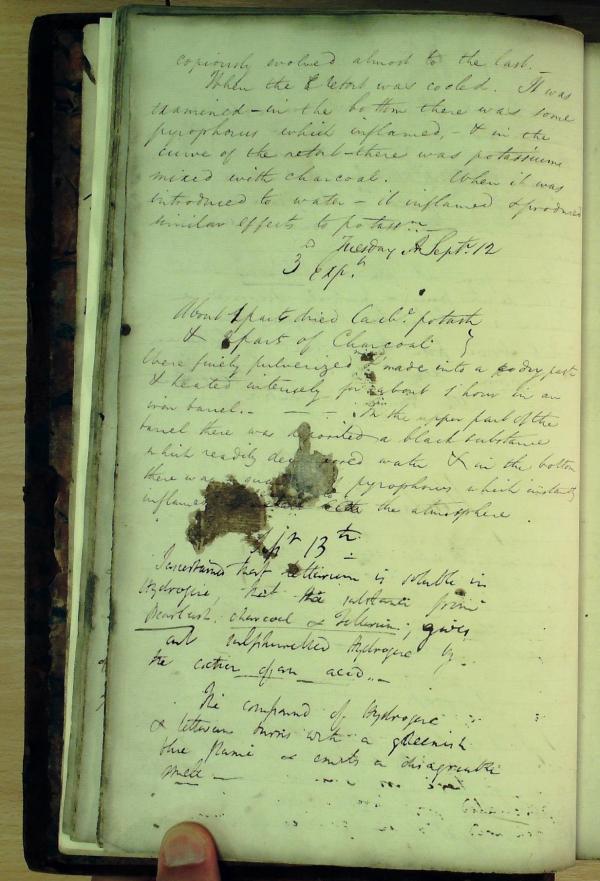 copiously evolved almost to the last.
When the retort was cooled. It was
examined – in the bottom there was some
pyrophorus which inflamed, – & in the
curve of the retort – there was potassium
mixed with charcoal. When it was
introduced to water – it inflamed & produced
similar effects to potassm
Tuesday Septr 12
3d Expt
About parts dried Carbe potash
& part of Charcoal }
Were finely pulverized made into a
& heated intensely for about 1 hour in an
iron barrel. – – In the upper part of the
barrel there was deposited a black substance
which readily water & in the bottom
there was pyrophorus which instantly
inflamed the atmosphere
13th
I ascertained that tellurium is soluble in
Hydrogene, that the substance from
Pearlash, charcoal & Tellurium, gives
out sulphuretted Hydrogene by
the action of an acid. –
The compound of Hydrogene
& tellurium burns with a greenish
blue flame & emits a disagreeable
smell –